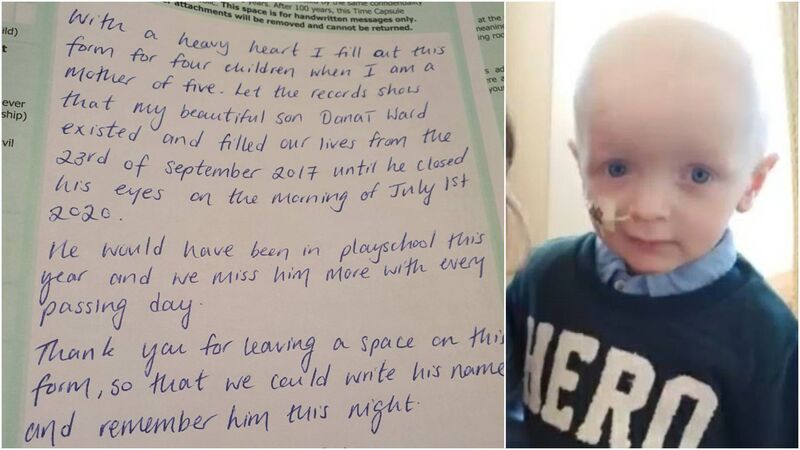 years. After 100 years, this Time Capsule
attachments will be removed and cannot be returned.
This space is for handwritten messages only.
With a heavy heart I fill out this
form for four children when I am a
mother of five. Let the records show
that my beautiful son Danat Ward
existed and filled our lives from the
23rd of September 2017 until he closed
his eyes on the morning of July 1st
2020.
He would have been in playschool this
year and we miss him more with every
passing day.
Thank you for leaving a space on this
form, so that we could write his name
and remember him this night.
ild)
ever
ship)
vil
at the
HERO